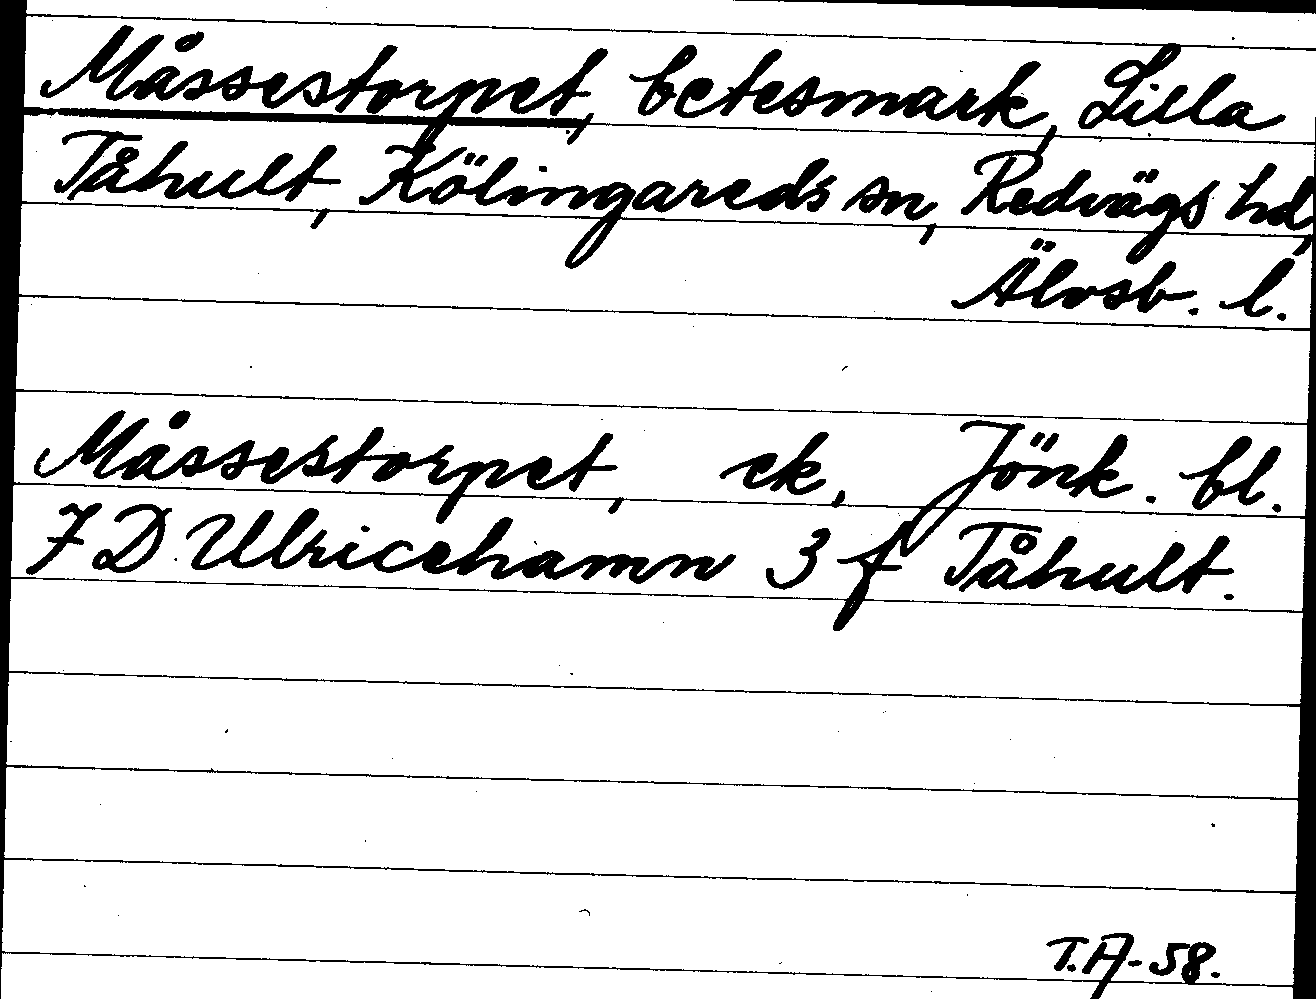 Måssestorpet, betesmark, Lilla
Tåhult, Kölingareds sn, Redvägs hd,
Älvsb. l.
Måssestorpet, ek, Jönk. bl.
7 D Ulricehamn 3 f Tåhult.
T.A-58.